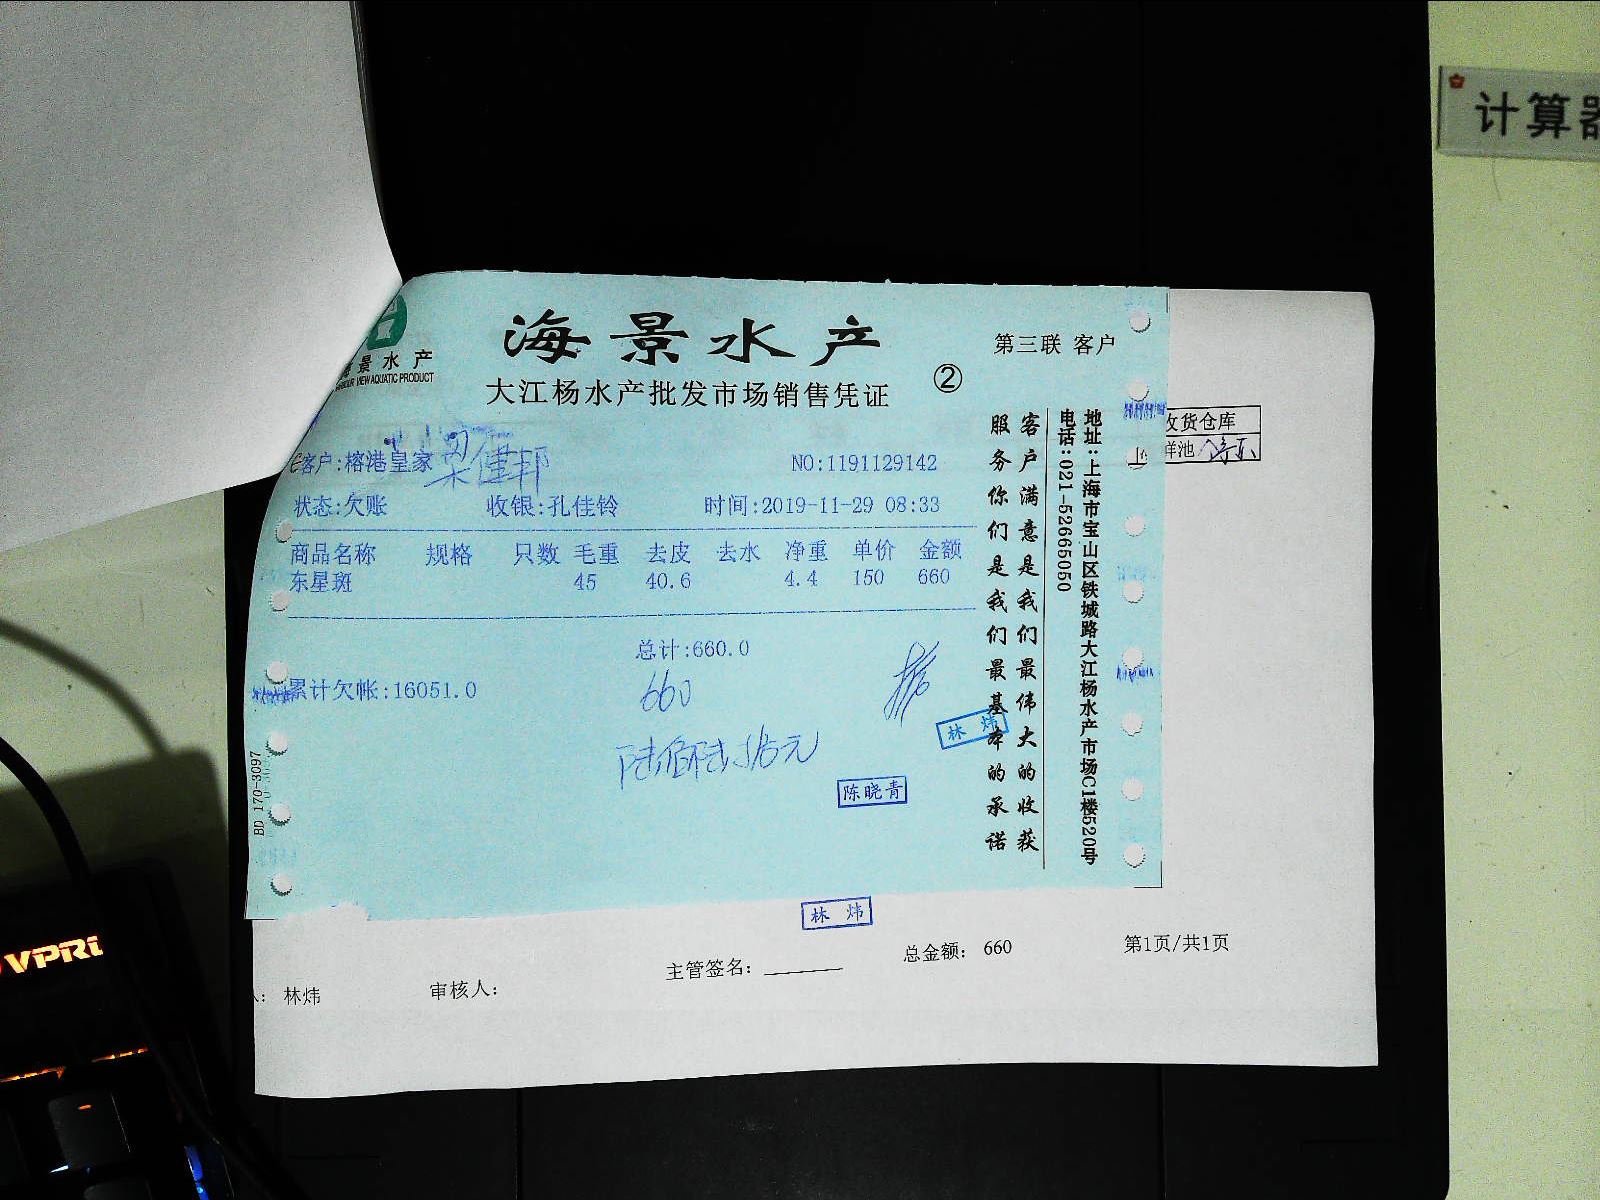 计算器
海景水产
第三联 客户
景水产
VIEW AQUATIC PRODUCT
大江杨水产批发市场销售凭证
②
客户:榕港皇家
梁健邦
NO:1191129142
状态:欠账 收银:孔佳铃 时间:2019-11-29 08:33
商品名称 规格 只数 毛重 去皮 去水 净重 单价 金额
东星斑 45 40.6 4.4 150 660
总计:660.0
累计欠帐:16051.0
660
陆佰陆拾元
林炜
陈晓青
客户满意是我们最伟大的收获
服务你们是我们最基本的承诺
地址:上海市宝山区铁城路大江杨水产市场C1楼520号
电话:021-52665050
收货仓库
鲜池
BD 170-3097
林炜
总金额: 660
第1页/共1页
主管签名:
审核人:
林炜
VPRO